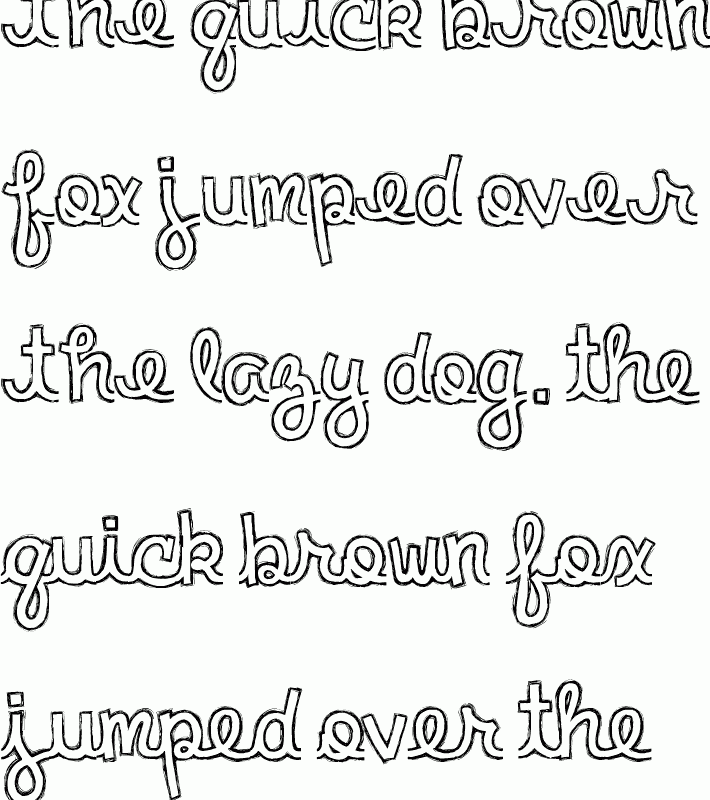 the quick brown
fox jumped over
the lazy dog. the
quick brown fox
jumped over the